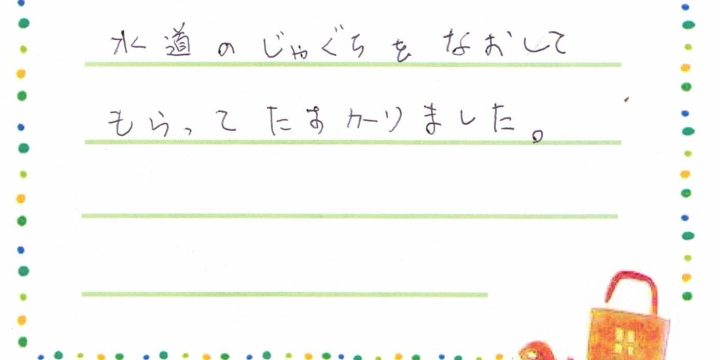 水道のじゃぐちをなおして
もらってたすかりました。